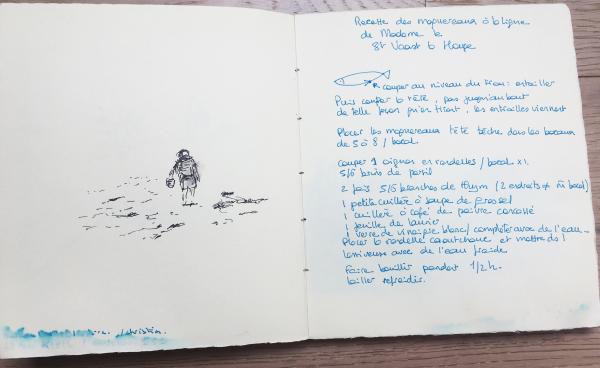 Recette des maquereaux à la ligne
de Madame le
St Vaast la Hougue
couper au niveau du trou : entailler
Puis couper la tête, pas jusqu'au bout
de telle façon qu'en tirant, les entrailles viennent
Placer les maquereaux tête bêche dans les bocaux
de 5 à 8 / bocal
couper 1 oignon en rondelles / bocal x1
5/6 brins de persil
2 fois 5/6 branches de thym (2 endroits ≠ m̂ bocal)
1 petite cuillère à soupe de gros sel
1 cuillère à café de poivre concassé
1 feuille de laurier
1 verre de vinaigre blanc / compléter avec de l'eau
Placer la rondelle caoutchouc et mettre ds 1
lessiveuse avec de l'eau froide
Faire bouillir pendant 1/2 h.
laisser refroidir.